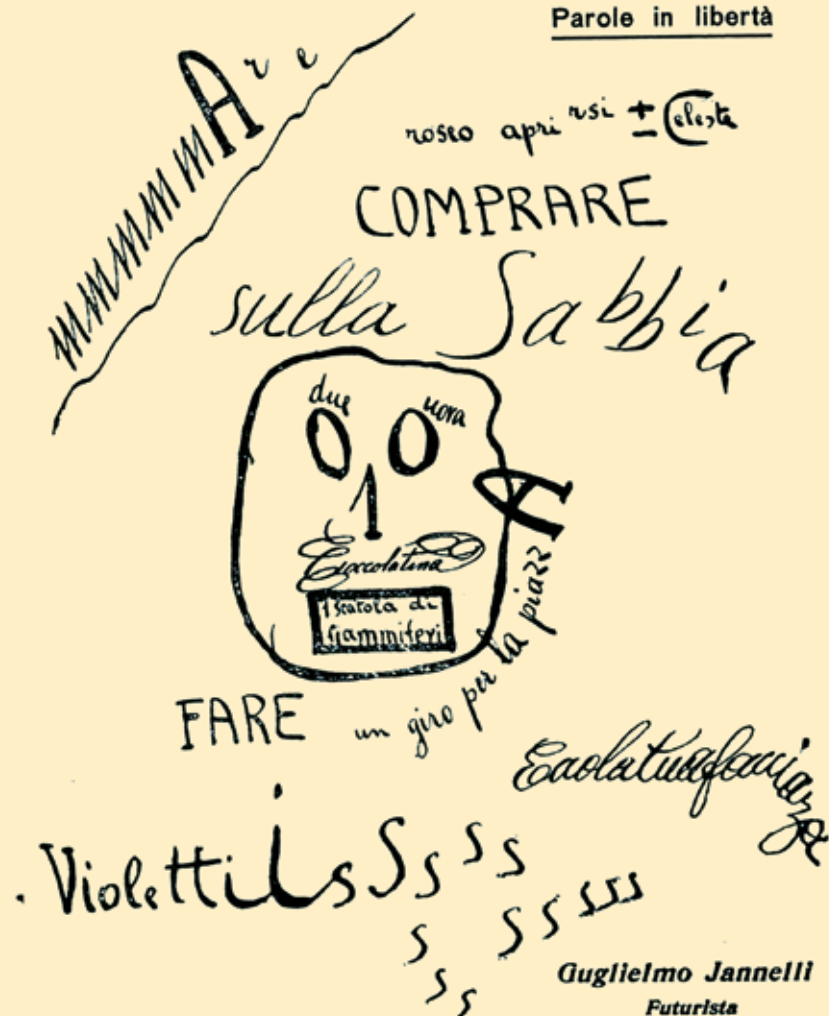 Parole in libertà
mmmmmmAre
roseo aprirsi ± Celeste
COMPRARE
sulla Sabbia
due uova
1
Cioccolatina
1 scatola di
fiammiferi
FARE un giro per la piazzA
Violettiiissssss
sssss
sss
Guglielmo Jannelli
Futurista